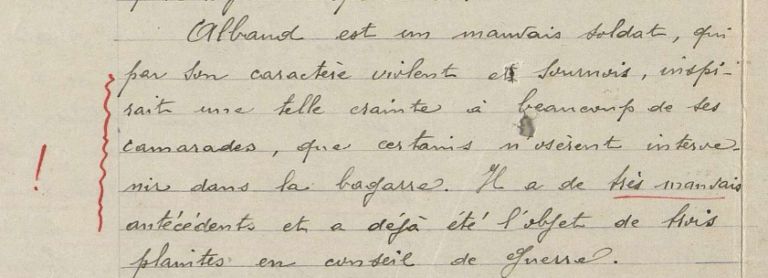 Alband est un mauvais soldat, qui
par son caractère violent et sournois, inspi-
rait une telle crainte à beaucoup de ses
camarades, que certains n'osèrent interve-
nir dans la bagarre. Il a de très mauvais
antécédents et a déjà été l'objet de trois
plaintes en conseil de guerre.
!